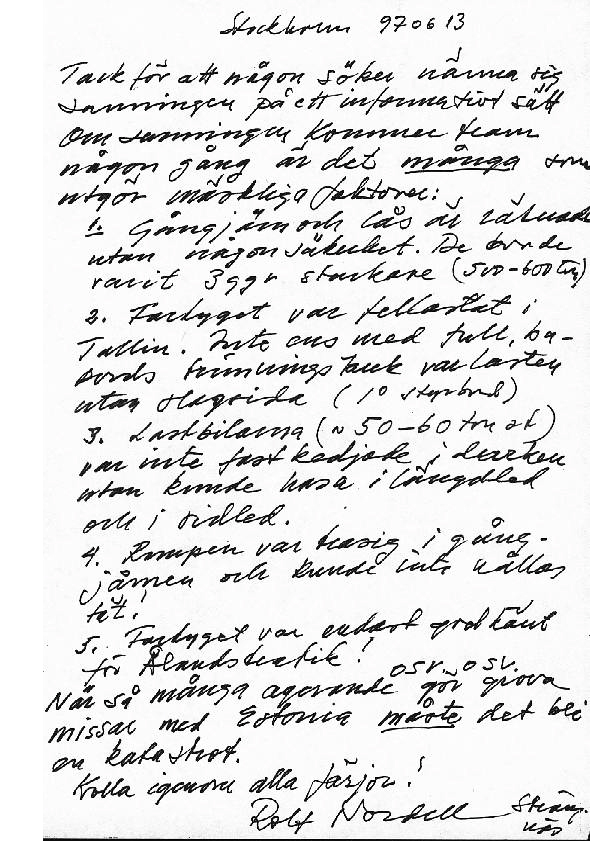 Stockholm 970613
Tack för att någon söker närma sig
sanningen på ett informativt sätt
Om sanningen kommer fram
någon gång är det många som
utgör märkliga faktorer:
1. Gångjärn och lås är räknade
utan någon säkerhet. De borde
varit 3 ggr starkare (500-600 ton)
2. Fartyget var fellastat i
Tallin. Inte ens med full, ba-
bords trimningstank var lasten
utan slagsida (1° styrbord)
3. Lastbilarna (~ 50-60 ton st)
var inte fastkedjade i däcken
utan kunde hasa i längdled
och i sidled.
4. Rampen var trasig i gång-
järnen och kunde inte hållas
tät!
5. Fartyget var endast godkänt
för Ålandstrafik! osv. osv.
När så många agerande gör grova
missar med Estonia måste det bli
en katastrof.
Kolla igenom alla färjor!
Rolf Nordell Sträng-
näs